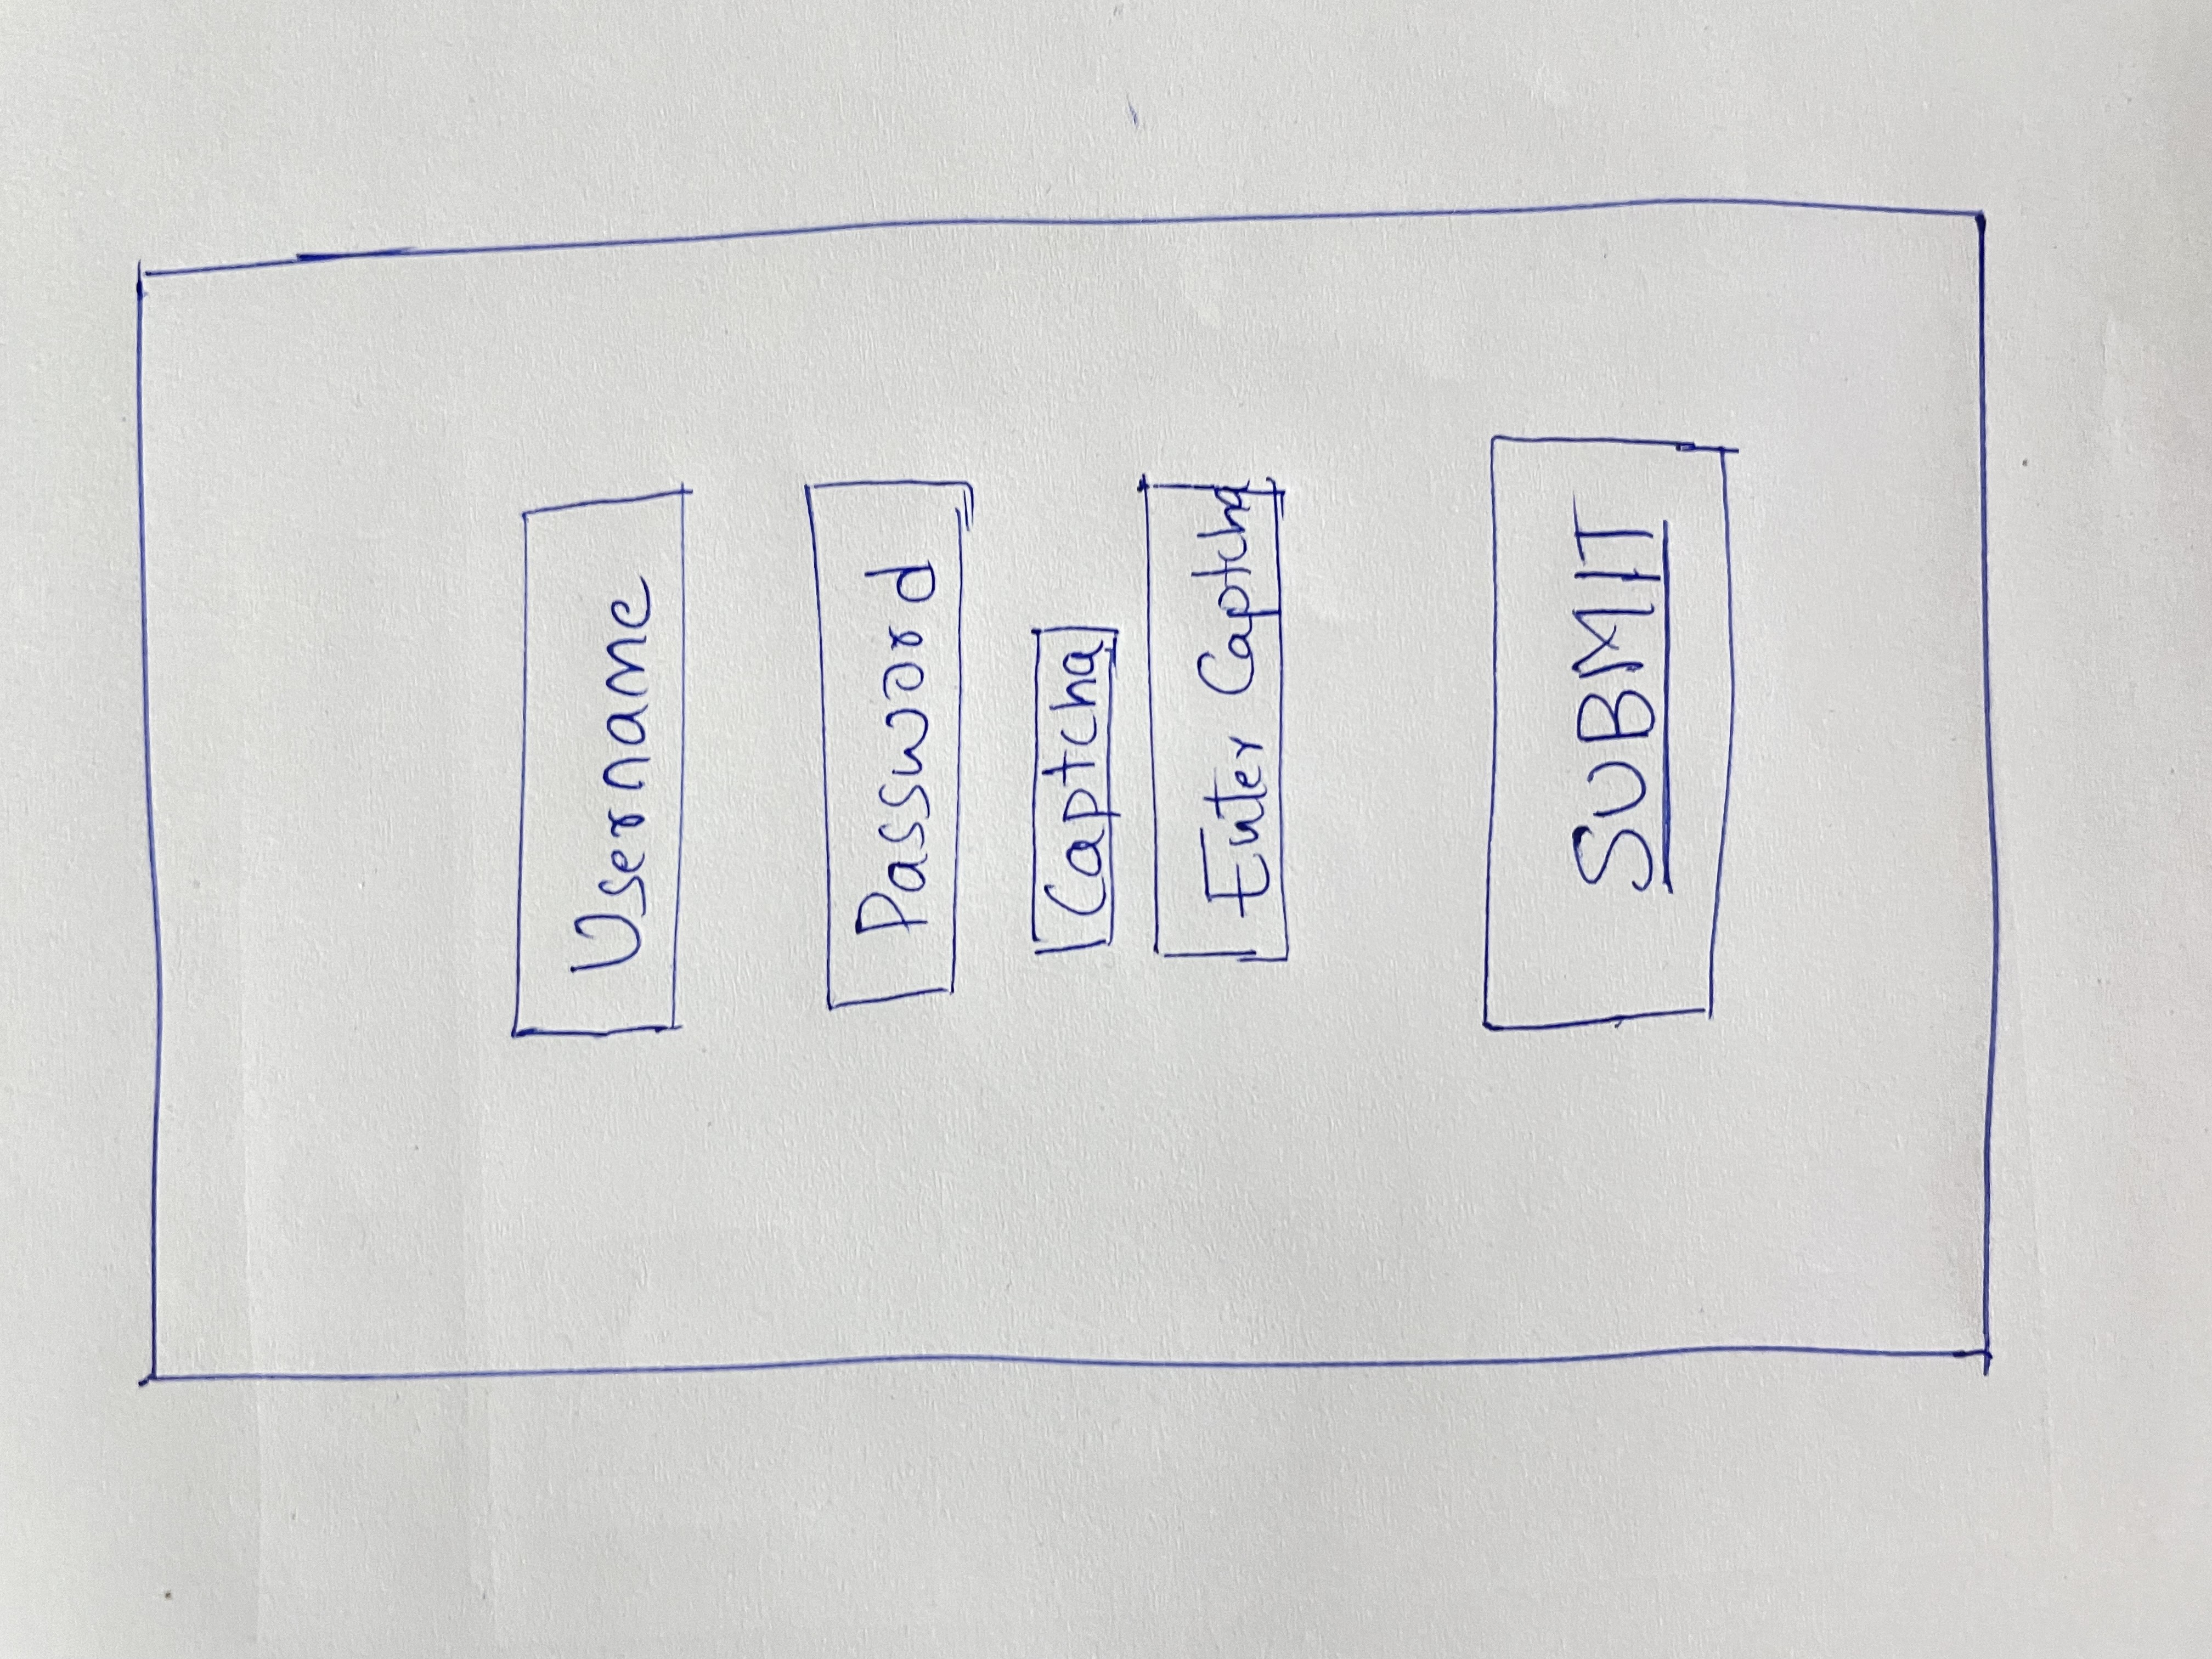 Username
Password
Captcha
Enter Captcha
SUBMIT